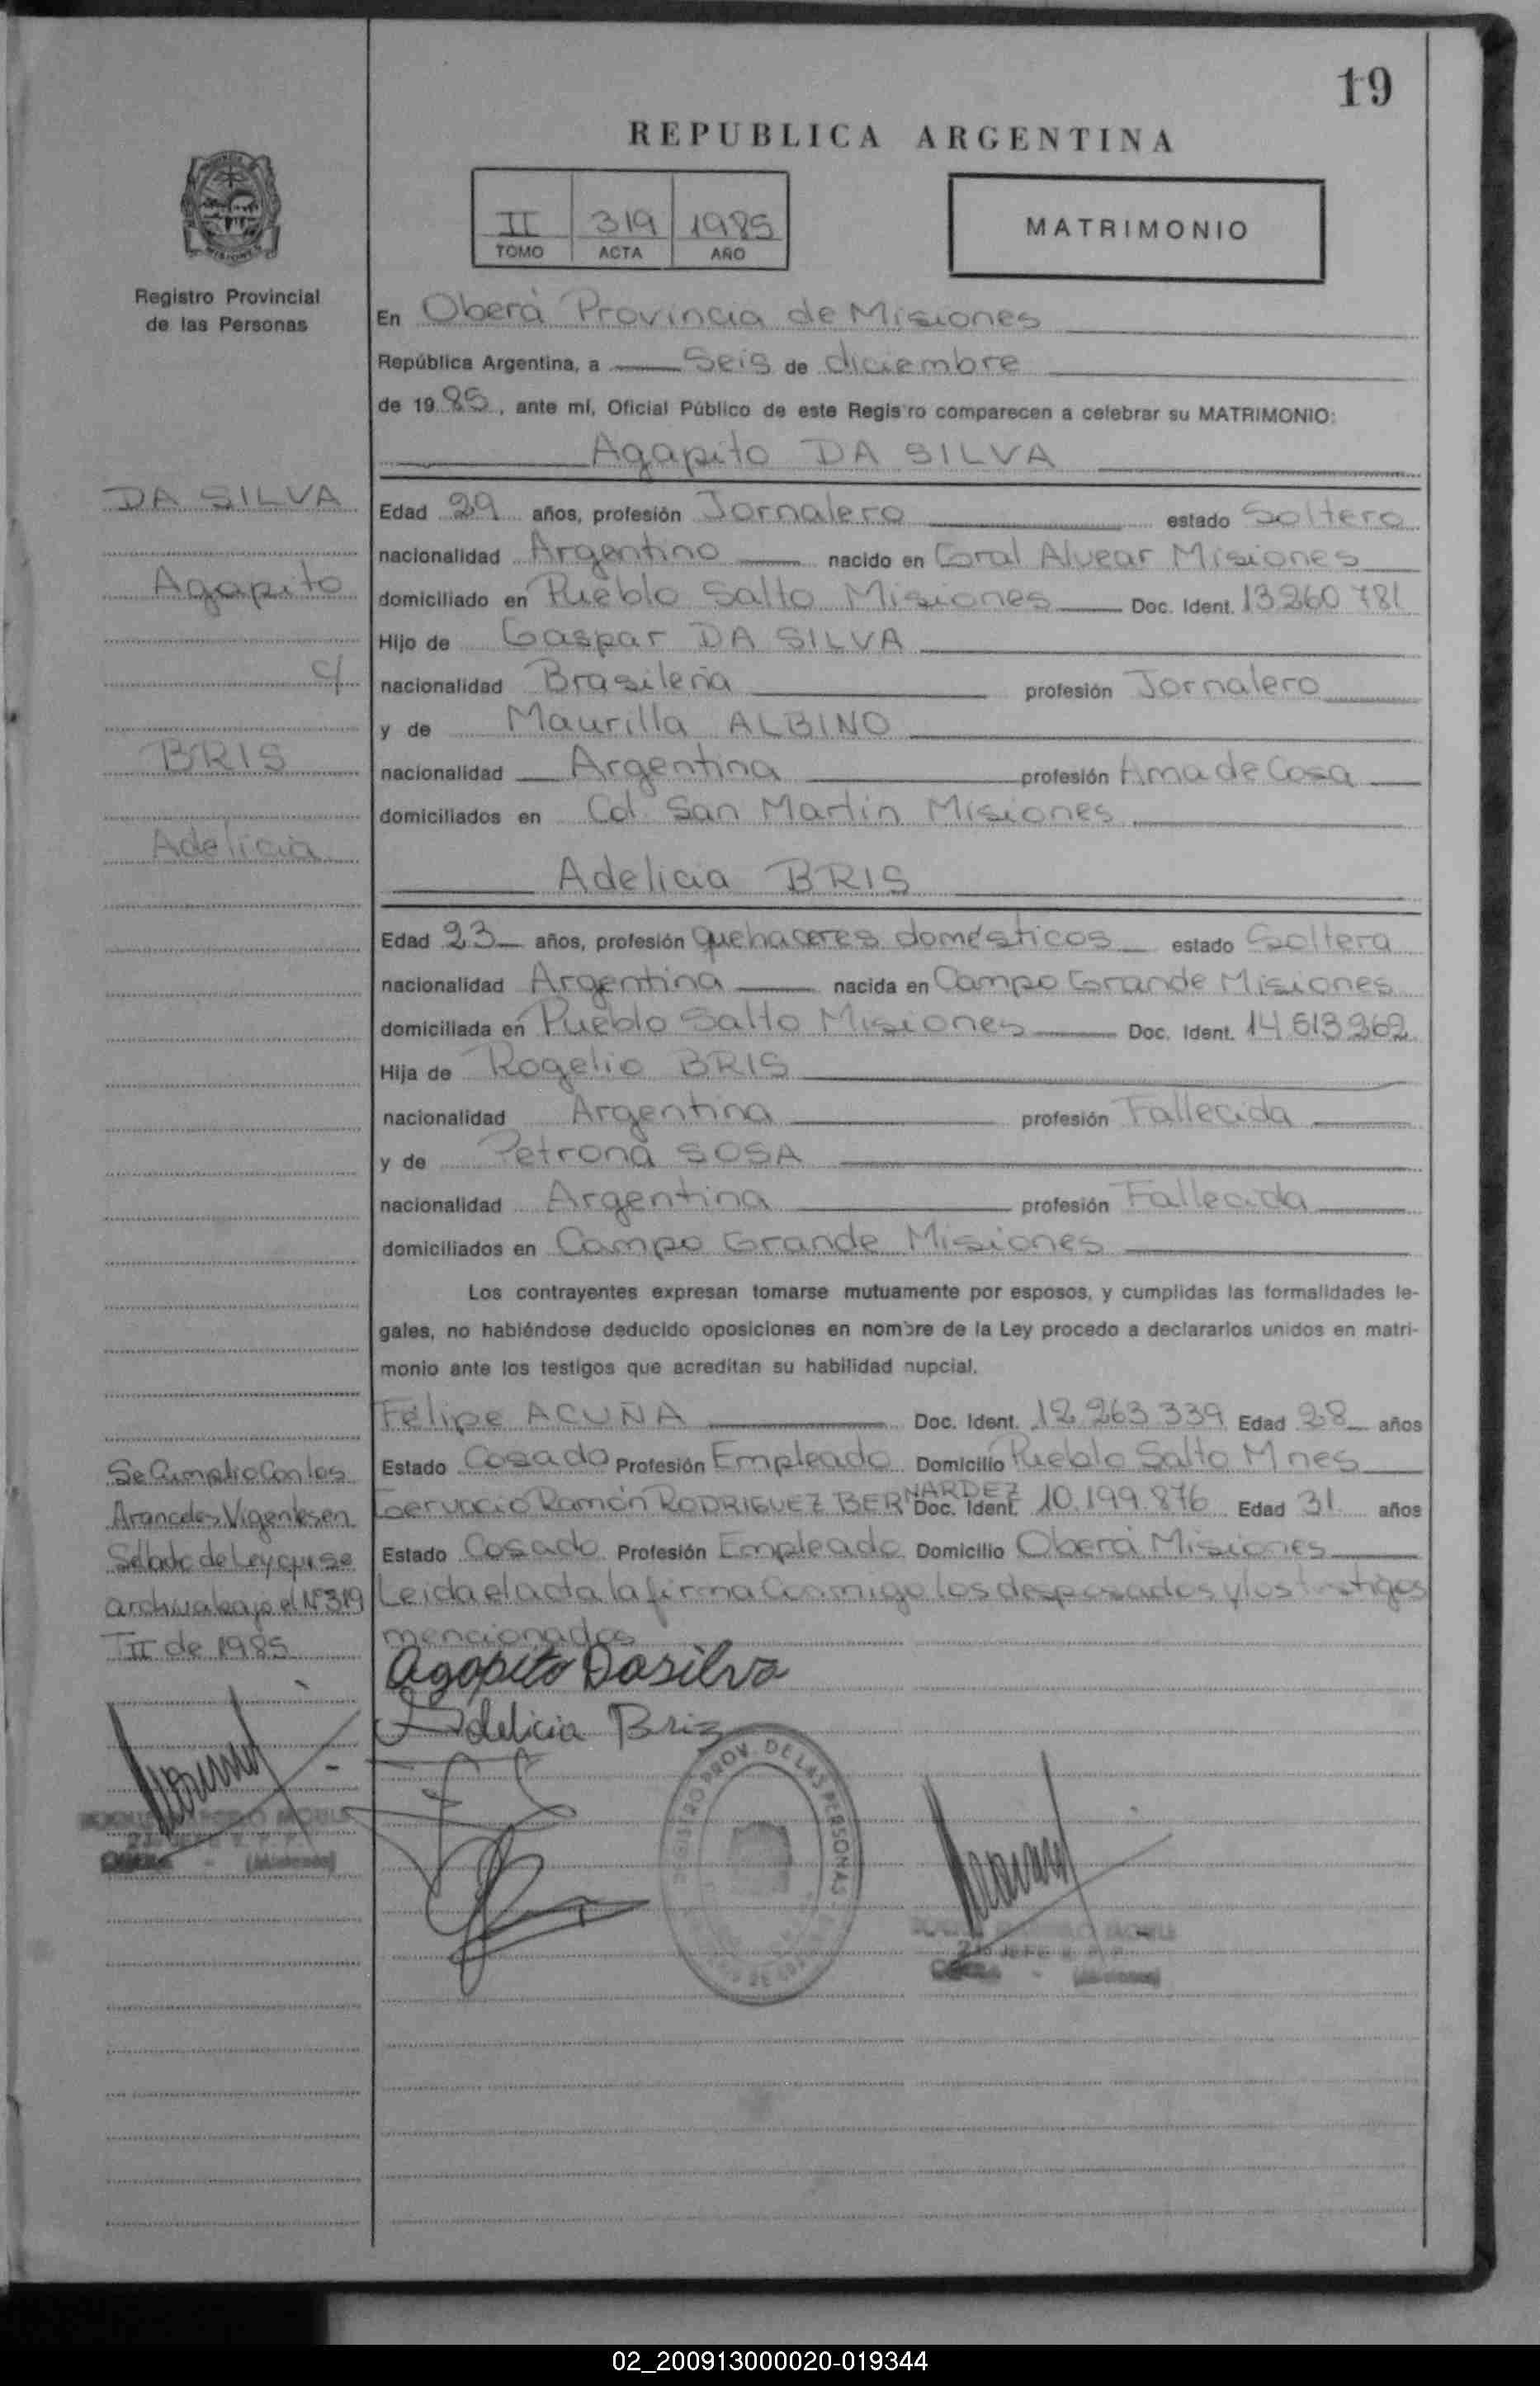 19
REPUBLICA ARGENTINA
II 319 1985
TOMO ACTA AÑO
MATRIMONIO
Registro Provincial
de las Personas
En Oberá Provincia de Misiones
República Argentina, a Seis de diciembre
de 19 85, ante mí, Oficial Público de este Registro comparecen a celebrar su MATRIMONIO:
Agapito DA SILVA
DA SILVA
Agapito
c/
BRIS
Adelicia
Edad 29 años, profesión Jornalero estado Soltero
nacionalidad Argentino nacido en Gral Alvear Misiones
domiciliado en Pueblo Salto Misiones Doc. Ident. 13.260 781
Hijo de Gaspar DA SILVA
nacionalidad Brasileña profesión Jornalero
y de Maurilla ALBINO
nacionalidad Argentina profesión Ama de Casa
domiciliados en Col. San Martín Misiones
Adelicia BRIS
Edad 23 años, profesión quehaceres domésticos estado Soltera
nacionalidad Argentina nacida en Campo Grande Misiones
domiciliada en Pueblo Salto Misiones Doc. Ident. 14.613.262
Hija de Rogelio BRIS
nacionalidad Argentina profesión Fallecida
y de Petrona SOSA
nacionalidad Argentina profesión Fallecida
domiciliados en Campo Grande Misiones
Los contrayentes expresan tomarse mutuamente por esposos, y cumplidas las formalidades le-
gales, no habiéndose deducido oposiciones en nombre de la Ley procedo a declararlos unidos en matri-
monio ante los testigos que acreditan su habilidad nupcial.
Felipe ACUÑA Doc. Ident. 12.263 339 Edad 28 años
Estado Casado Profesión Empleado Domicilio Pueblo Salto Mnes
Gervacio Ramón RODRIGUEZ BERNARDEZ Doc. Ident. 10.199.876 Edad 31 años
Estado Casado Profesión Empleado Domicilio Oberá Misiones
Leida el acta la firma Conmigo los desposados y los testigos
mencionados
Se Cumplio Con los
Aranceles Vigentes en
Sellado de Ley que se
archiva bajo el Nº 319
T II de 1985
Agapito Dasilva
Adelicia Briz
REGISTRO PROV. DE LAS PERSONAS
02_200913000020-019344